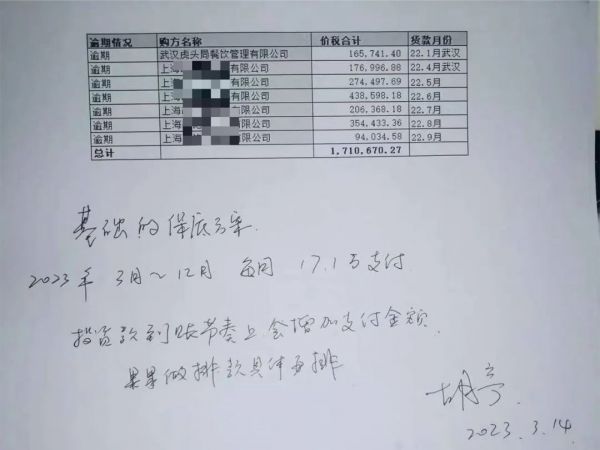 逾期情况 购方名称 价税合计 货款月份
逾期 武汉虎头局餐饮管理有限公司 165,741.40 22.1月武汉
逾期 上海 有限公司 176,996.88 22.4月武汉
逾期 上海 有限公司 274,497.69 22.5月
逾期 上海 有限公司 438,598.18 22.6月
逾期 上海 有限公司 206,368.18 22.7月
逾期 上海 有限公司 354,433.36 22.8月
逾期 上海 有限公司 94,034.58 22.9月
总计 1,710,670.27
基础的保底方案
2023年 3月~12月 每月 17.1万支付
投资款到账节奏上会增加支付金额
果果做排款具体再排
胡亭
2023.3.14